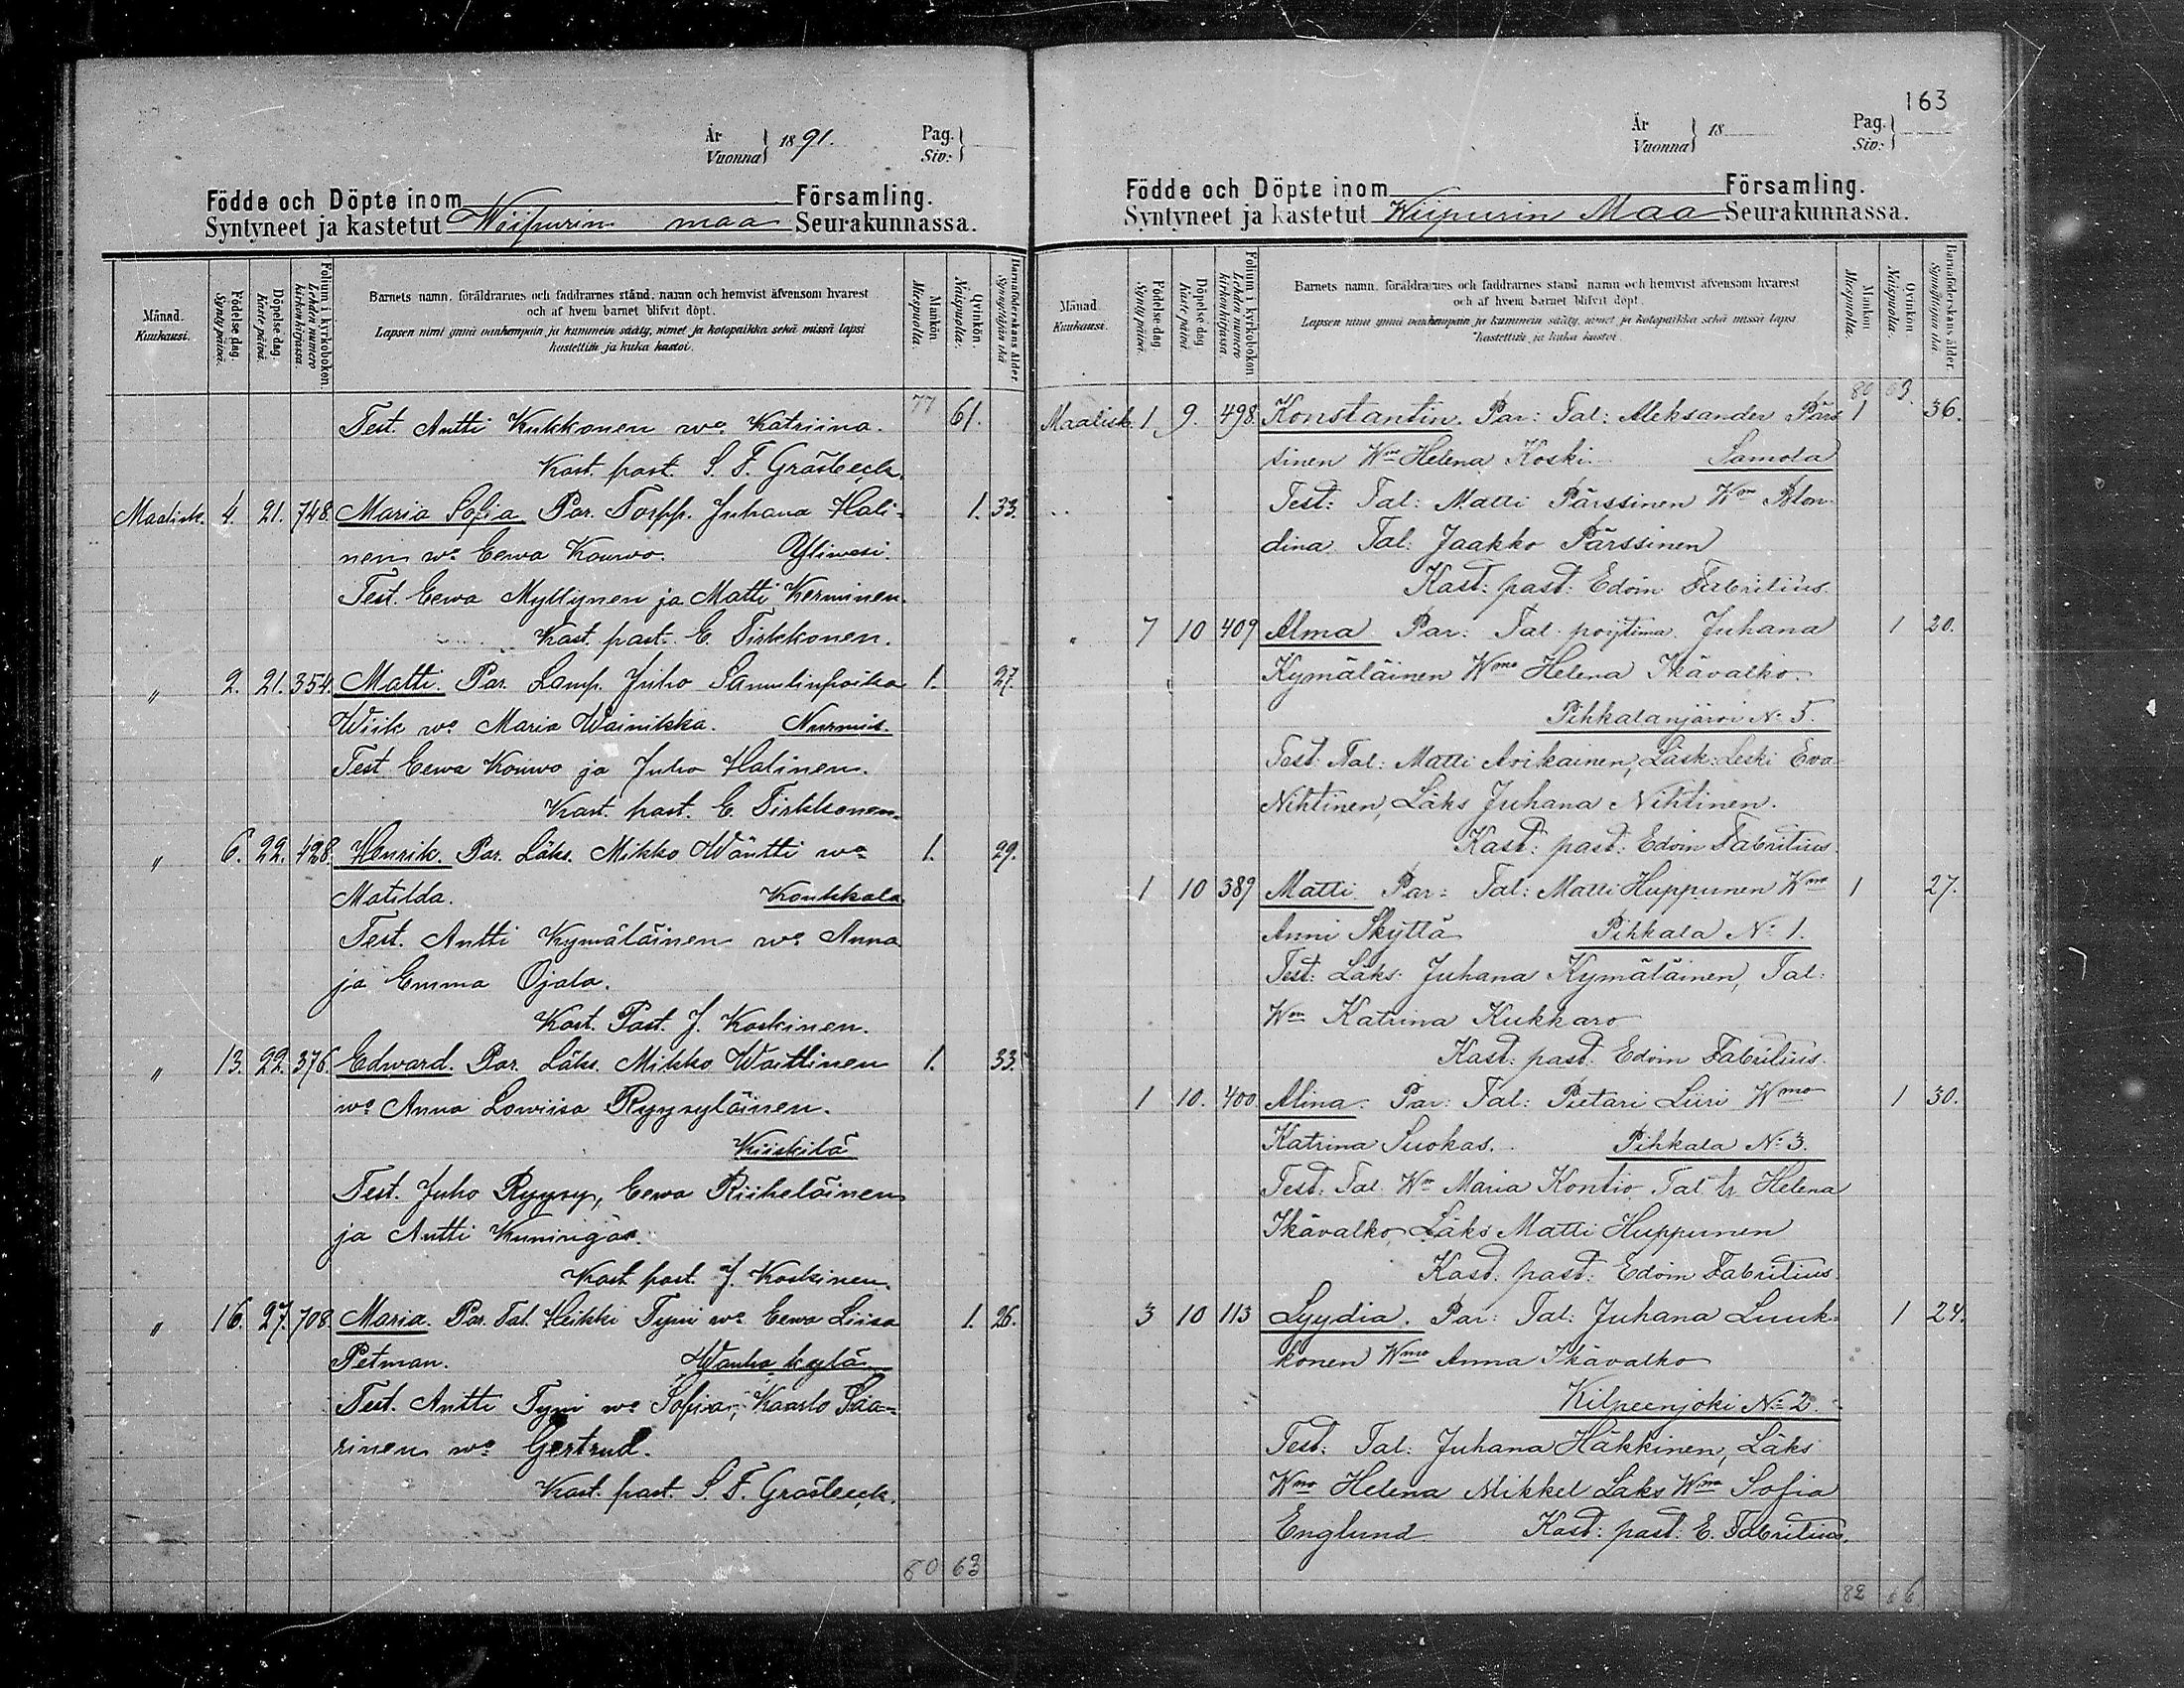 163
År
Vuonna } 1891.
Pag.
Siv: }
Födde och Döpte inom Församling.
Syntyneet ja kastetut Wiipurin maa Seurakunnassa.
Månad.
Kuukausi.
Födelse-dag.
Synty päivä.
Döpelse-dag.
Kaste päivä.
Folium i kyrkoboken
Lehden numero
kirkonkirjassa.
Barnets namn, föräldrarnes och faddrarnes stånd, namn och hemvist äfvensom hvarest
och af hvem barnet blifvit döpt.
Lapsen nimi ynnä vanhempain ja kummein sääty, nimet ja kotopaikka sekä missä lapsi
kastettiin ja kuka kastoi.
Mankön.
Miespuolia.
Qvinkön.
Naispuolia.
Barnaföderskans ålder
Synnyttäjän ikä
77 61.
Test. Antti Kukkonen wo. Katriina.
Kast. past. S. F. Gråsbeck.
Maalisk. 4. 21. 748. Maria Sofia Par. Torpp. Juhana Hali- 1. 33.
nen wo. Eewa Kouwo. Yliwesi.
Test. Eewa Myllynen ja Matti Kerminen.
Kast. past. E. Tirkkonen.
" 2. 21. 354. Matti. Par. Lamp. Juho Samulinpoika 1. 27.
Wiik wo. Maria Wainikka. Nurmis.
Test Eewa Kouwo ja Juho Halinen.
Kast. past. E. Tirkkonen.
" 6. 22. 428. Henrik. Par. Läks. Mikko Wäntti wo 1. 29.
Matilda. Konkkala
Test. Antti Kymäläinen wo. Anna
ja Emma Ojala.
Kast. Past. J. Koskinen.
" 13. 22. 376. Edward. Par. Läks. Mikko Waittinen 1. 33.
wo Anna Lowiisa Ryysyläinen.
Kiiskilä
Test. Juho Ryysy, Eewa Riiheläinen
ja Antti Kuningas.
Kast. past. J. Koskinen.
" 16. 27. 708. Maria. Par. Tal. Heikki Tyni wo. Eewa Liisa 1. 26.
Petman. Wanha kylä
Test. Antti Tyni wo Sofia, Kaarlo Saa-
rinen wo. Gertrud.
Kast. past. S. F. Gråsbeck.
80 63
År
Vuonna } 18
Pag.
Siv: }
Födde och Döpte inom Församling.
Syntyneet ja kastetut Wiipurin Maa Seurakunnassa.
Månad.
Kuukausi.
Födelse-dag.
Synty päivä.
Döpelse-dag
Kaste päivä
Folium i kyrkoboken
Lehden numero
kirkonkirjassa.
Barnets namn, föräldrarnes och faddrarnes stånd namn och hemvist äfvensom hvarest
och af hvem barnet blifvit döpt.
Lapsen nimi ynnä vanhempain ja kummein sääty, nimet ja kotopaikka sekä missä lapsi
kastettiin ja kuka kastoi.
Mankön
Miespuolia.
Qvinkön.
Naispuolia.
Barnaföderskans ålder
Synnyttäjän ikä.
80 63.
Maalisk. 1 9. 498. Konstantin. Par: Tal: Aleksander Pärs 1 36.
sinen Wmo Helena Koski. Samola
Test: Tal: Matti Pärssinen Wmo Blon-
dina Tal: Jaakko Pärssinen
Kast: past: Edvin Fabritius.
" 7 10 409 Alma Par: Tal. poijtima Juhana 1 20.
Kymäläinen Wmo Helena Ikävalko.
Pihkalanjärvi No 5.
Test: Tal: Matti Arikainen, Läsk: Leski Eva
Nihtinen, Läks Juhana Nihtinen.
Kast: past: Edvin Fabritius
1 10 389 Matti Par: Tal: Matti Huppunen Wmo 1 27.
Anni Skyttä Pihkala No 1.
Test: Läks: Juhana Kymäläinen, Tal:
Wmo Katrina Kukkaro
Kast: past: Edvin Fabritius.
1 10. 400 Alina. Par: Tal: Pietari Liiri Wmo 1 30.
Katrina Suokas. Pihkala No 3.
Test: Tal. Wmo Maria Kontio Tal. tr Helena
Ikävalko Läks Matti Huppunen
Kast: past: Edvin Fabritius
3 10 113 Lyydia. Par: Tal: Juhana Luuk- 1 24.
konen Wmo Anna Ikävalko
Kilpeenjoki No 2.
Test: Tal: Juhana Häkkinen, Läks
Wmo Helena Mikkel Läks Wmo Sofia
Englund Kast: past: E. Fabritius.
82 66